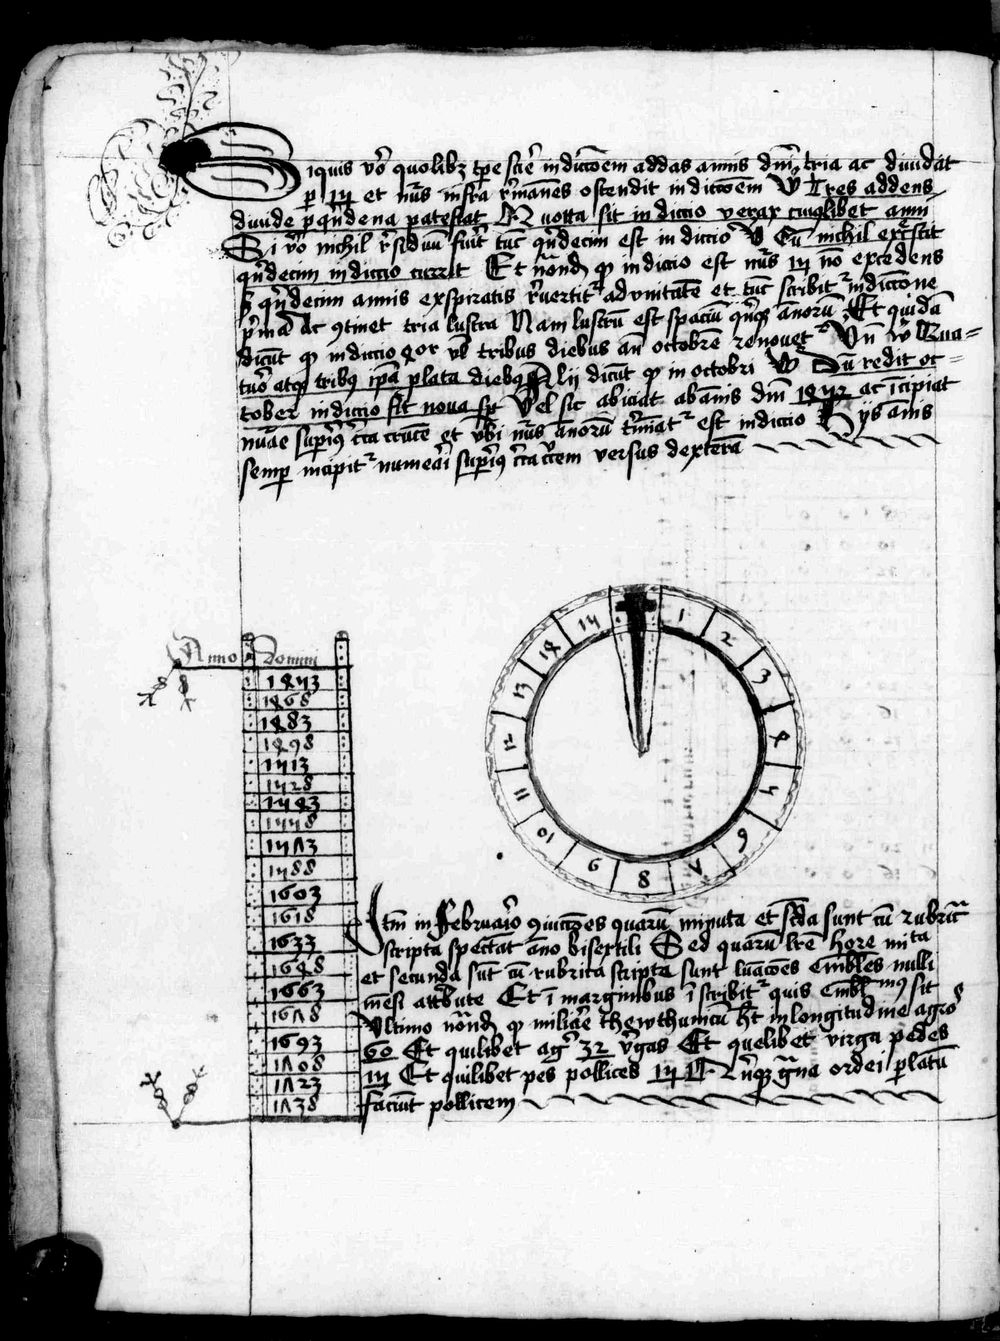 Siquis vo᷑ quolibꝫ tꝑe scir̄e indictōem addas annis dnī tria ac diuidat
ꝑ 15 et nūs infra r̄manēs ostendit indictōem V̄ Tres addens
diuide ꝑ qndena patefiat Quotta sit indictio verax cuiꝯlibet anni
Si vo᷑ nichil r̄siduū fuit̄ tūc qn̄decim est indictio V̄ Cū nichil exc̄stit
qn̄decim indictio currit Et nōnd ꝙ indictio est nūs 15 nō excedens
ꝫ qn̄decim annis expiratis r̄uertit᷑ ad vnitatē et tūc scribit᷑ indictōne
pr̄ma Ac ꝯtinet tria lustra Nam lustrū est spaciū qn̄qꝫ annorū Et quidā
dicūt ꝙ indictio qͦr vl̄ tribus diebus an̄ octobrē renouet᷑ Vn̄ V̄ Qua=
tuo᷑ atqꝫ tribꝯ ip̄a ꝓlata diebꝯ Alij dicūt ꝙ in octobri V̄ Dū redit oc=
tober indictio fit noua sꝑ Vel sic abiciat ab annis dnī 1452 ac īcipiat
nūae suꝑiꝯ cc̄a crucē et vbi nūs annorū t̄minat᷑ est indictio Hijs annis
semꝑ incipit᷑ numeār̄i suꝑiꝯ cc̄a c᷑cem versus dexterā
15 1 2 3 4 5 6 7 8 9 10 11 12 13 14
Anno Domini
1453
1468
1483
1498
1513
1528
1543
1558
1573
1588
1603
1618
1633
1648
1663
1678
1693
1708
1723
1738
Itm̄ in Februar̄io ꝯiūctōes quarū minuta et sc̄da sunt cū rubrica
scripta spectāt āno bisextili Sed quarū lr̄e hore mi͛ta
et secunda sūt cū rubrica scripta sunt lūacōes Embl̄es nulli
mesi attr̄bute Et ī marginibus ī scribit᷑ quis Embl̄mꝯ sit
Vltimo nōnd ꝙ miliar̄e thewthunicū hꝫ in longitudine agros
60 Et quilibet ag᷑ 32 v᷑gas Et quelibet virga pedes
15 Et quilibet pes pollices 15 Qn̄qꝫ gͣna ordei ꝑ latū
faciūt pollicem